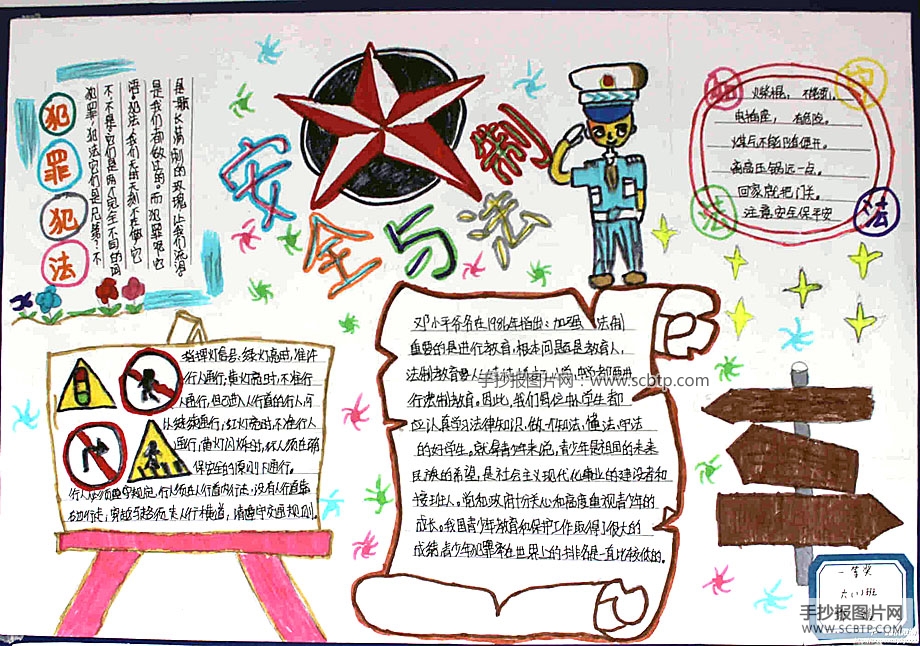 安全与法制
犯罪犯法
犯罪、犯法它们是兄弟?不
不,不是。它们是两个完全不同的词
语。犯法,我们天天刻不在做,它
是我们都做过的。而犯罪呢?它
是一
让我们流泪。
火柴棍,不能玩。
电插座,有危险。
煤气不能随便开。
高高压锅远一点。
回家就把门关。
注意安全保平安
指挥灯信号:绿灯亮时,准许
行人通行;黄灯亮时,不准行
人通行,但已进入人行道的行人,可
以继续通行;红灯亮时,不准行人
通行;黄灯闪烁时,行人须在确
保安全的原则下通行。
行人必须遵守规定,行人须在人行道内行走,没有人行道靠
右边行走;穿越马路须走人行横道;请遵守交通规则
邓小平爷爷在1986年指出:加强法制
重要的是进行教育,根本问题是教育人,
法制教育要从
行法制教育。因此,我们每位中小学生都
应认真学习法律知识,做一个知法、懂法、守法
的好学生。就青少年来说,青少年是祖国的未来
民族的希望,是社会主义现代化事业的建设者和
接班人。党和政府十分关心和高度重视青少年的
成长。我国青少年教育和保护工作取得了很大的
成绩,青少年犯罪率在世界上的排名是一直比较低的。
手抄报图片网:www.scbtp.com
一等奖
六(1)班
手抄报图片网
WWW.SCBTP.COM